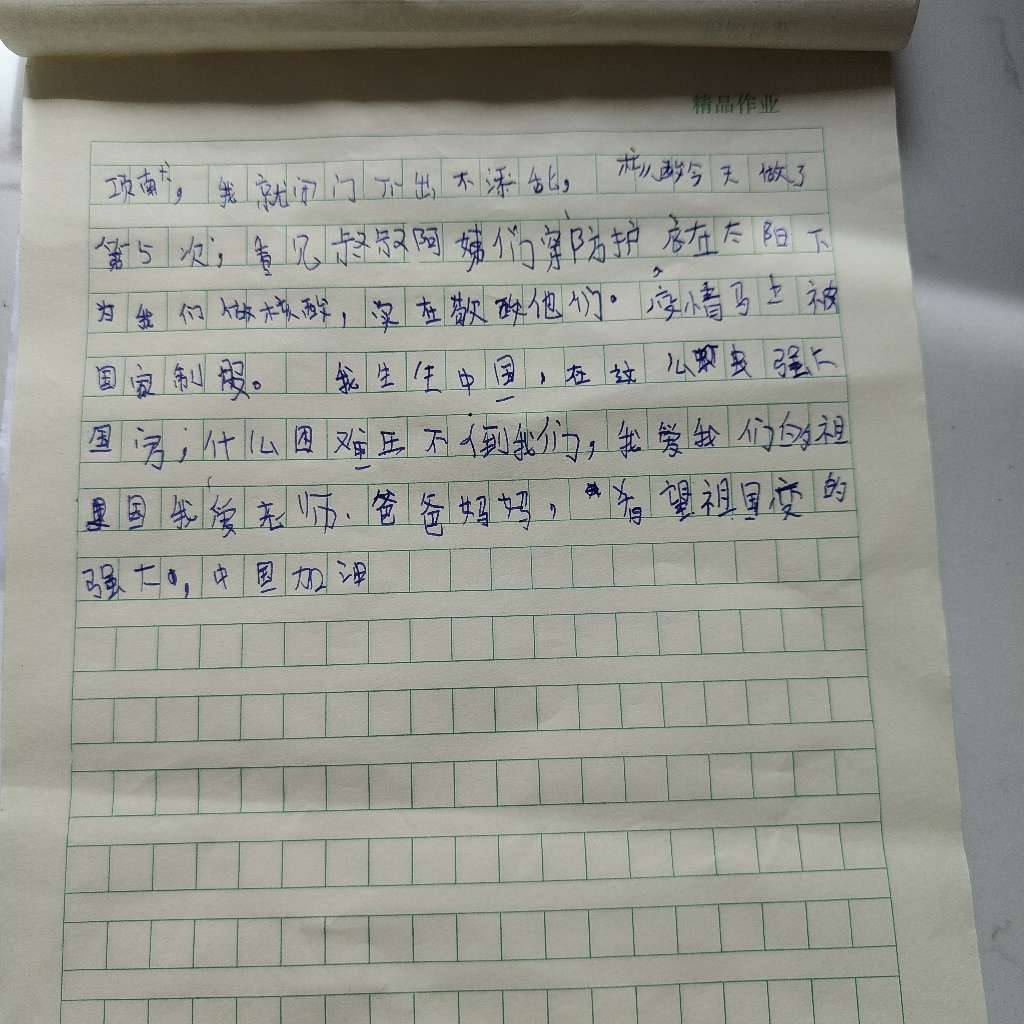 精品作业
我就闭门不出不添乱，核酸今天做了
第5次，看见叔叔阿姨们穿防护在太阳下
为我们做核酸，实在敬他们。疫情马上被
国家制服。我生在中国，在这么强大
国家，什么困难压不倒我们，我爱我们的祖
国我爱老师、爸爸妈妈，希望祖国变的
强大，中国加油